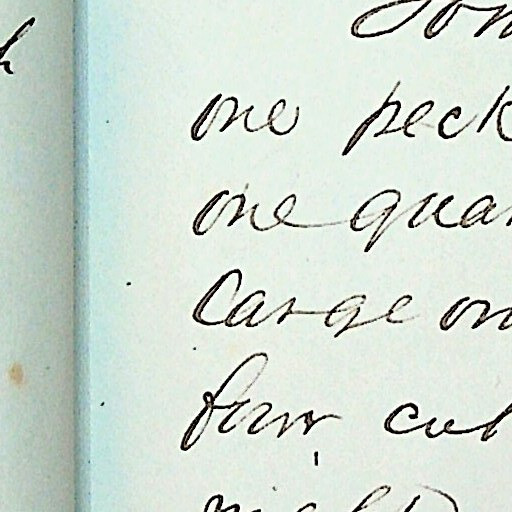 one peck
one quar
Large on
four cut